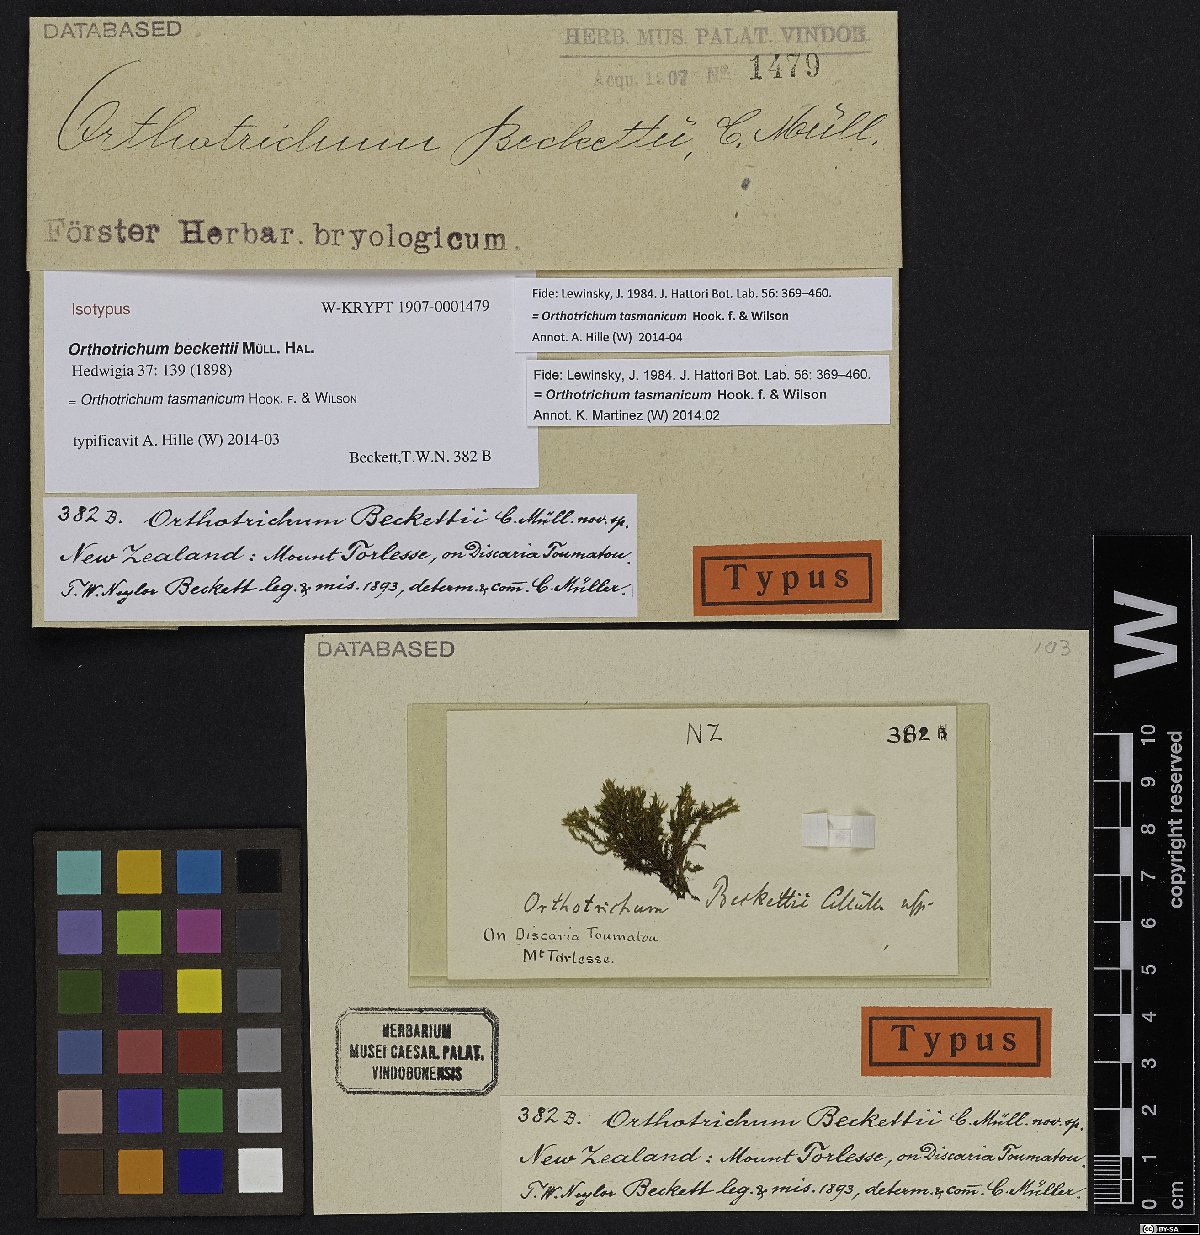 DATABASED
HERB. MUS. PALAT. VINDOB.
Acqu. 1907 No 1479
Orthotrichum Beckettii, C. Müll.
Förster Herbar. bryologicum.
Isotypus
W-KRYPT 1907-0001479
Orthotrichum beckettii MÜLL. HAL.
Hedwigia 37: 139 (1898)
= Orthotrichum tasmanicum HOOK. F. & WILSON
typificavit A. Hille (W) 2014-03
Beckett,T.W.N. 382 B
Fide: Lewinsky, J. 1984. J. Hattori Bot. Lab. 56: 369–460.
= Orthotrichum tasmanicum Hook. f. & Wilson
Annot. A. Hille (W) 2014-04
Fide: Lewinsky, J. 1984. J. Hattori Bot. Lab. 56: 369–460.
= Orthotrichum tasmanicum Hook. f. & Wilson
Annot. K. Martinez (W) 2014.02
382 B. Orthotrichum Beckettii C. Müll. nov. sp.
New Zealand: Mount Torlesse, on Discaria Toumatou.
T. W. Naylor Beckett leg. & mis. 1893, determ. & com̄. C. Müller.
Typus
DATABASED
193
NZ
382 B
Orthotrichum Beckettii CMüll. nsp.
On Discaria Toumatou
Mt Torlesse.
HERBARIUM
MUSEI CAESAR. PALAT.
VINDOBONENSIS
Typus
382 B. Orthotrichum Beckettii C. Müll. nov. sp.
New Zealand: Mount Torlesse, on Discaria Toumatou.
T. W. Naylor Beckett leg. & mis. 1893, determ. & com̄. C. Müller.
W
copyright reserved
0 1 2 3 4 5 6 7 8 9 10
cm
cc BY-SA